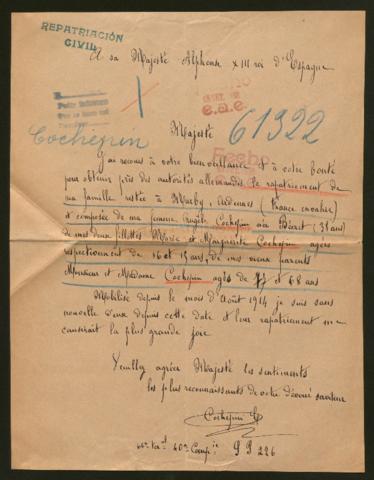 REPATRIACIÓN
CIVIL
A sa Majesté Alphonse XIII roi d'Espagne
Cochepin
Majesté
61322
J'ai recours à votre bienveillance et à votre bonté
pour obtenir près des autorités allemandes le rapatriement de
ma famille restée à Murby, Ardennes (France envahie)
et composée de ma femme Angèle Cochepin née Béart (38 ans)
de mes deux fillettes Marie et Marguerite Cochepin agées
respectivement de 16 et 13 ans, de mes vieux parents
Monsieur et Madame Cochepin agés de 77 et 68 ans
Mobilisé depuis le mois d'Août 1914 je suis sans
nouvelle d'eux depuis cette date et leur rapatriement me
causerait la plus grande joie
Veuillez agréer Majesté les sentiments
les plus reconnaissants de votre dévoué serviteur
Cochepin
60e Compie 226